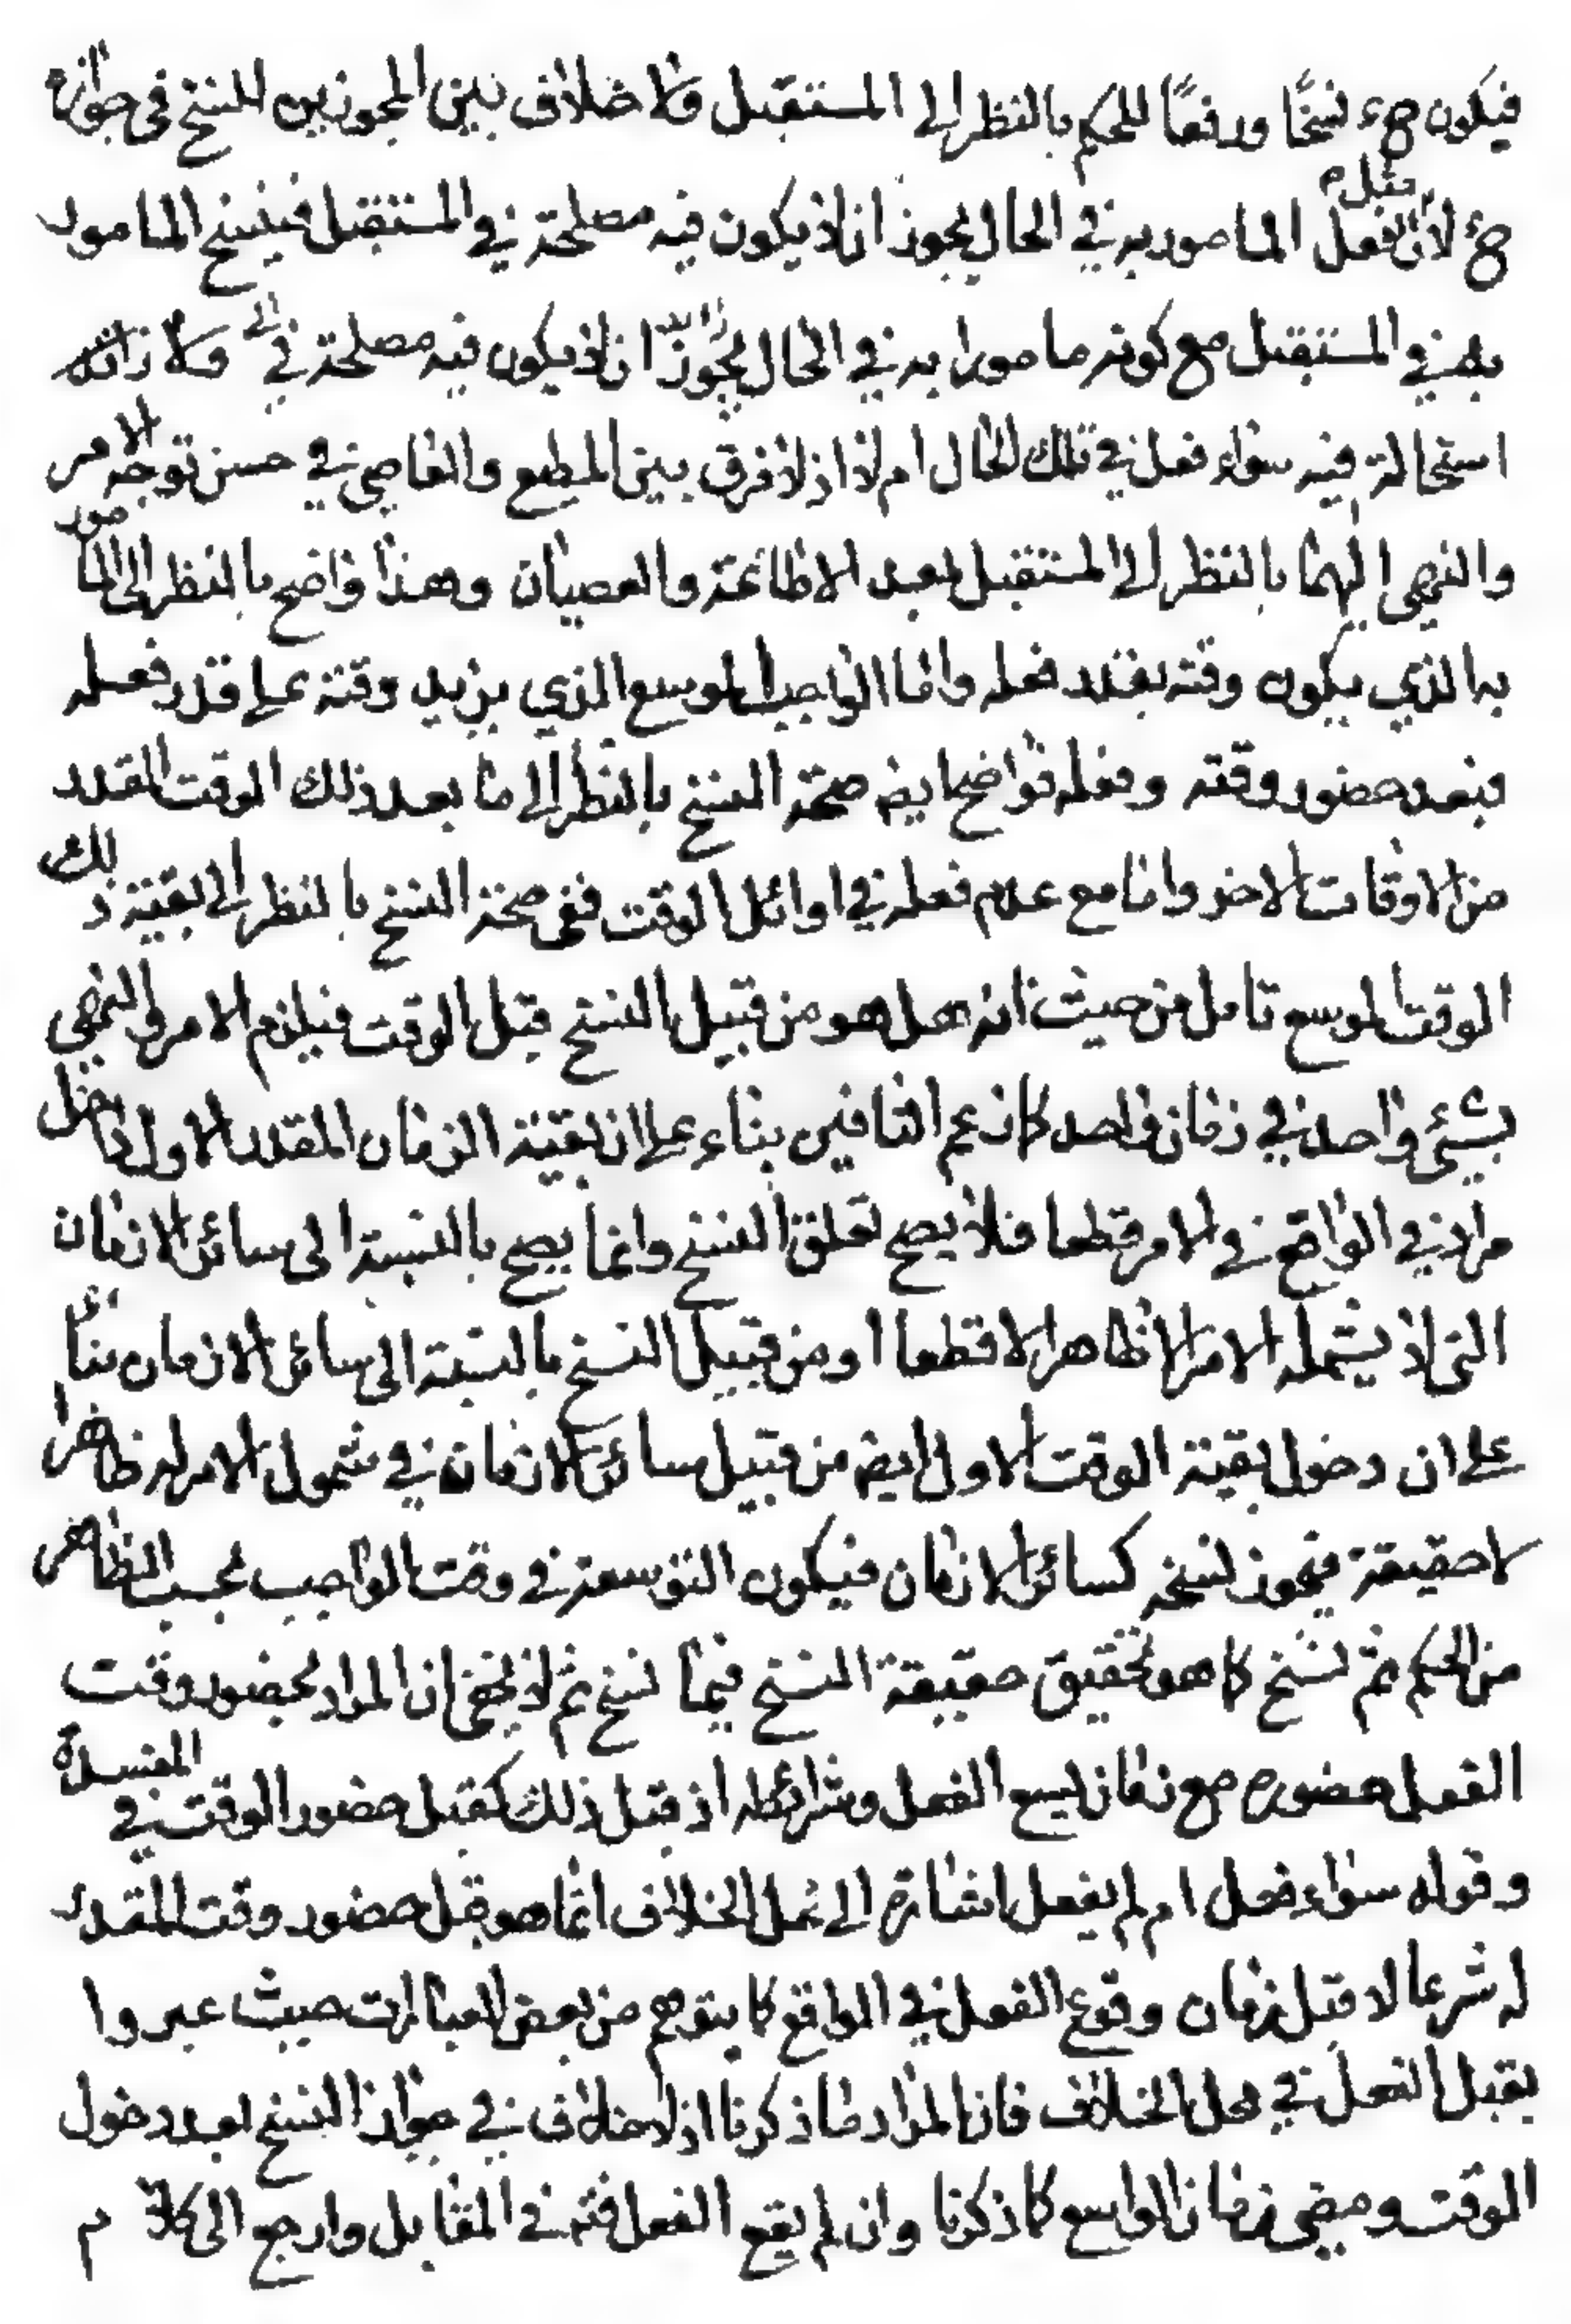 فيكون ح نسخًا ورفعًا للحكم بالنظر الى المستقبل ولا خلاف بين المجوزين للنسخ في جوازه
ح لان مثل الفعل المامور به في الحال يجوز ان لا يكون فيه مصلحة في المستقبل فينسخ المامور
به في المستقبل مع كونه مامورا به في الحال يجوز ان لا يكون فيه مصلحة في ولا
استحالة فيه سواء فعل في تلك الحال ام لا اذ لا فرق بين المطيع والعاصي في حسن توجه الامر
والنهي اليهما بالنظر الى المستقبل بعد الاطاعة والعصيان وهذا واضح بالنظر الى المامور
به الذي يكون وقته بقدر فعله واما الواجب الموسع الذي يزيد وقته على قدر فعله
فبعد حضور وقته وفعله فواضح ايضا صحة النسخ بالنظر الى ما بعد ذلك الوقت المقدر
من الاوقات الاخر واما مع عدم فعله في اوائل الوقت ففي صحة النسخ بالنظر الى بقية ذلك
الوقت الموسع تامل من حيث انه هل هو من قبيل النسخ قبل الوقت فيلزم الامر والنهي
بشيء واحد في زمان واحد كما زعم النافين بناء على ان بقية الزمان المقدر الاول داخل
مراد في الواقع في الامر قطعا فلا يصح تعلق النسخ وانما يصح بالنسبة الى سائر الازمان
التي لا يشمله الامر الا ظاهرا لا قطعا او من قبيل النسخ بالنسبة الى سائر الازمان بناء
على ان دخول بقية الوقت الاول ايضا من قبيل سائر الازمان في شمول الامر له ظاهرا
لا حقيقة فيجوز نسخه كسائر الازمان فيكون التوسعة في وقت الواجب بحسب الظاهر
من الحكم ثم نسخ كما هو تحقيق حقيقة النسخ فيما نسخ ثم لا يخفى ان المراد بحضور وقت
الفعل حضوره مع زمان يسع الفعل وشرائطه اذ قبل ذلك كقبل حضور الوقت في المفسدة
وقوله سواء فعل ام لم يفعل اشارة الى محل الخلاف انما هو قبل حضور وقت المقدر
له شرعا لا قبل زمان وقوع الفعل في الواقع كما يتوهم من بعض العبارات حيث عبروا
بقبل الفعل في محل الخلاف فان المراد ما ذكرنا اذ لا خلاف في جواز النسخ بعد دخول
الوقت ومضي زمان الواسع كما ذكرنا وان لم يقع الفعل فتم في المقابل وارجع الى م